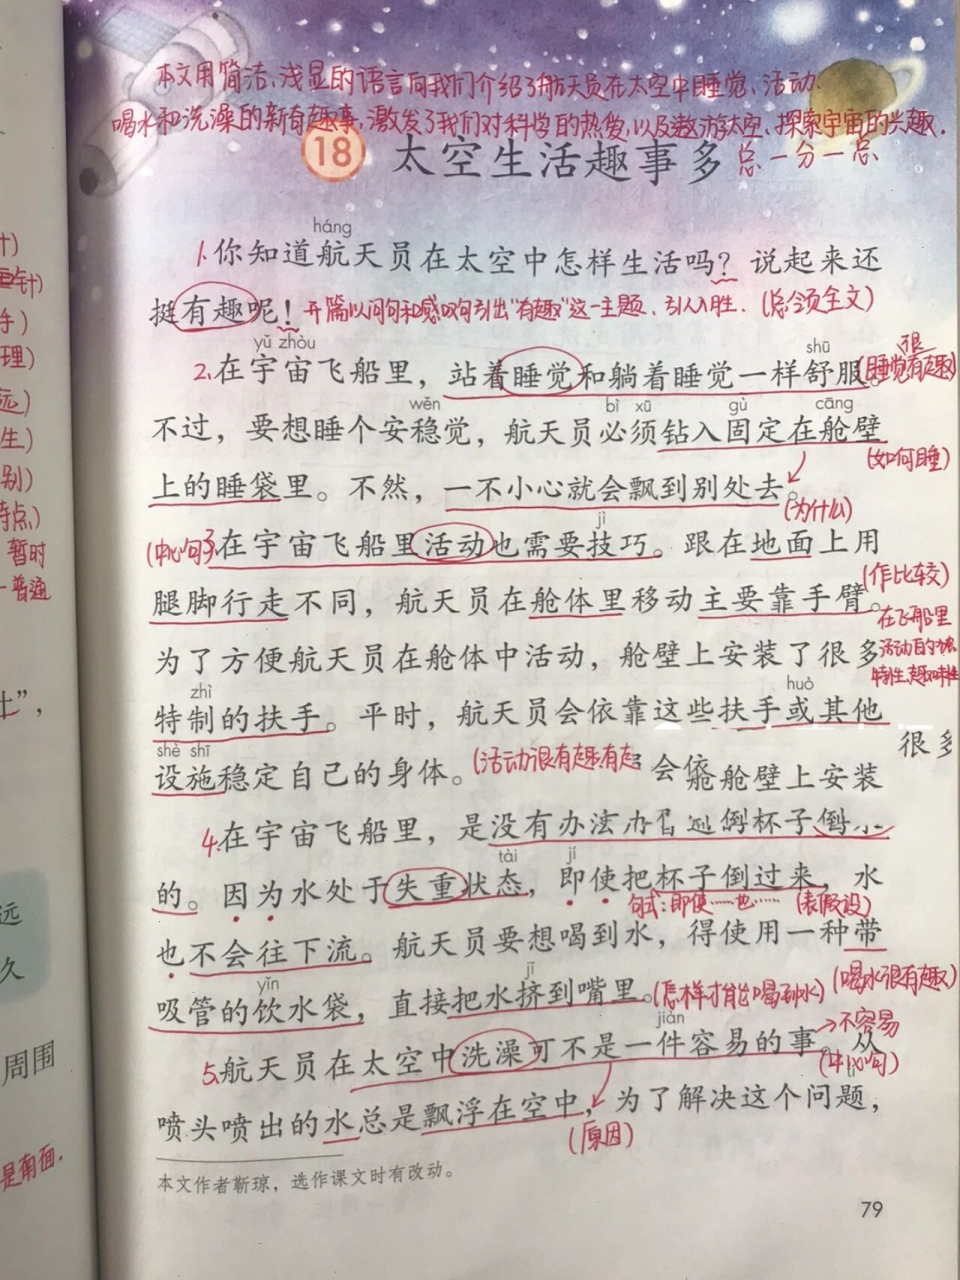 本文用简洁、浅显的语言向我们介绍了航天员在太空中睡觉、活动、
喝水和洗澡的新奇趣事,激发了我们对科学的热爱,以及遨游太空、探索宇宙的兴趣.
18 太空生活趣事多 总一分一总
háng
1.你知道航天员在太空中怎样生活吗？说起来还
挺有趣呢！开篇以问句和感叹句引出“有趣”这一主题、引人入胜.(总领全文)
yǔ zhòu shū 很
2.在宇宙飞船里，站着睡觉和躺着睡觉一样舒服。(睡觉有趣)
wěn bì xū gù cāng
不过，要想睡个安稳觉，航天员必须钻入固定在舱壁
(如何睡)
上的睡袋里。不然，一不小心就会飘到别处去。
(为什么)
jì
(中心句)3.在宇宙飞船里活动也需要技巧。跟在地面上用
(作比较)
腿脚行走不同，航天员在舱体里移动主要靠手臂。
在飞船里
为了方便航天员在舱体中活动，舱壁上安装了很多
zhì huò
特制的扶手。平时，航天员会依靠这些扶手或其他
很多
shè shī
设施稳定自己的身体。(活动很有趣有趣 会依 舱舱壁上安装
4.在宇宙飞船里，是没有办法 杯子倒水
tài jí
的。因为水处于失重状态，即使把杯子倒过来，水
句式:即使……也……(表假设)
也不会往下流。航天员要想喝到水，得使用一种带
yǐn jǐ
(喝水很有趣)
吸管的饮水袋，直接把水挤到嘴里。(怎样才能喝到水)
jiàn
5.航天员在太空中洗澡可不是一件容易的事。从
→不容易
(中心句)
喷头喷出的水总是飘浮在空中，为了解决这个问题，
(原因)
本文作者靳琼，选作课文时有改动。
79
计)
手)
理)
远)
生)
别)
特点)
暂时
普通
”，
远
久
周围
是南面.